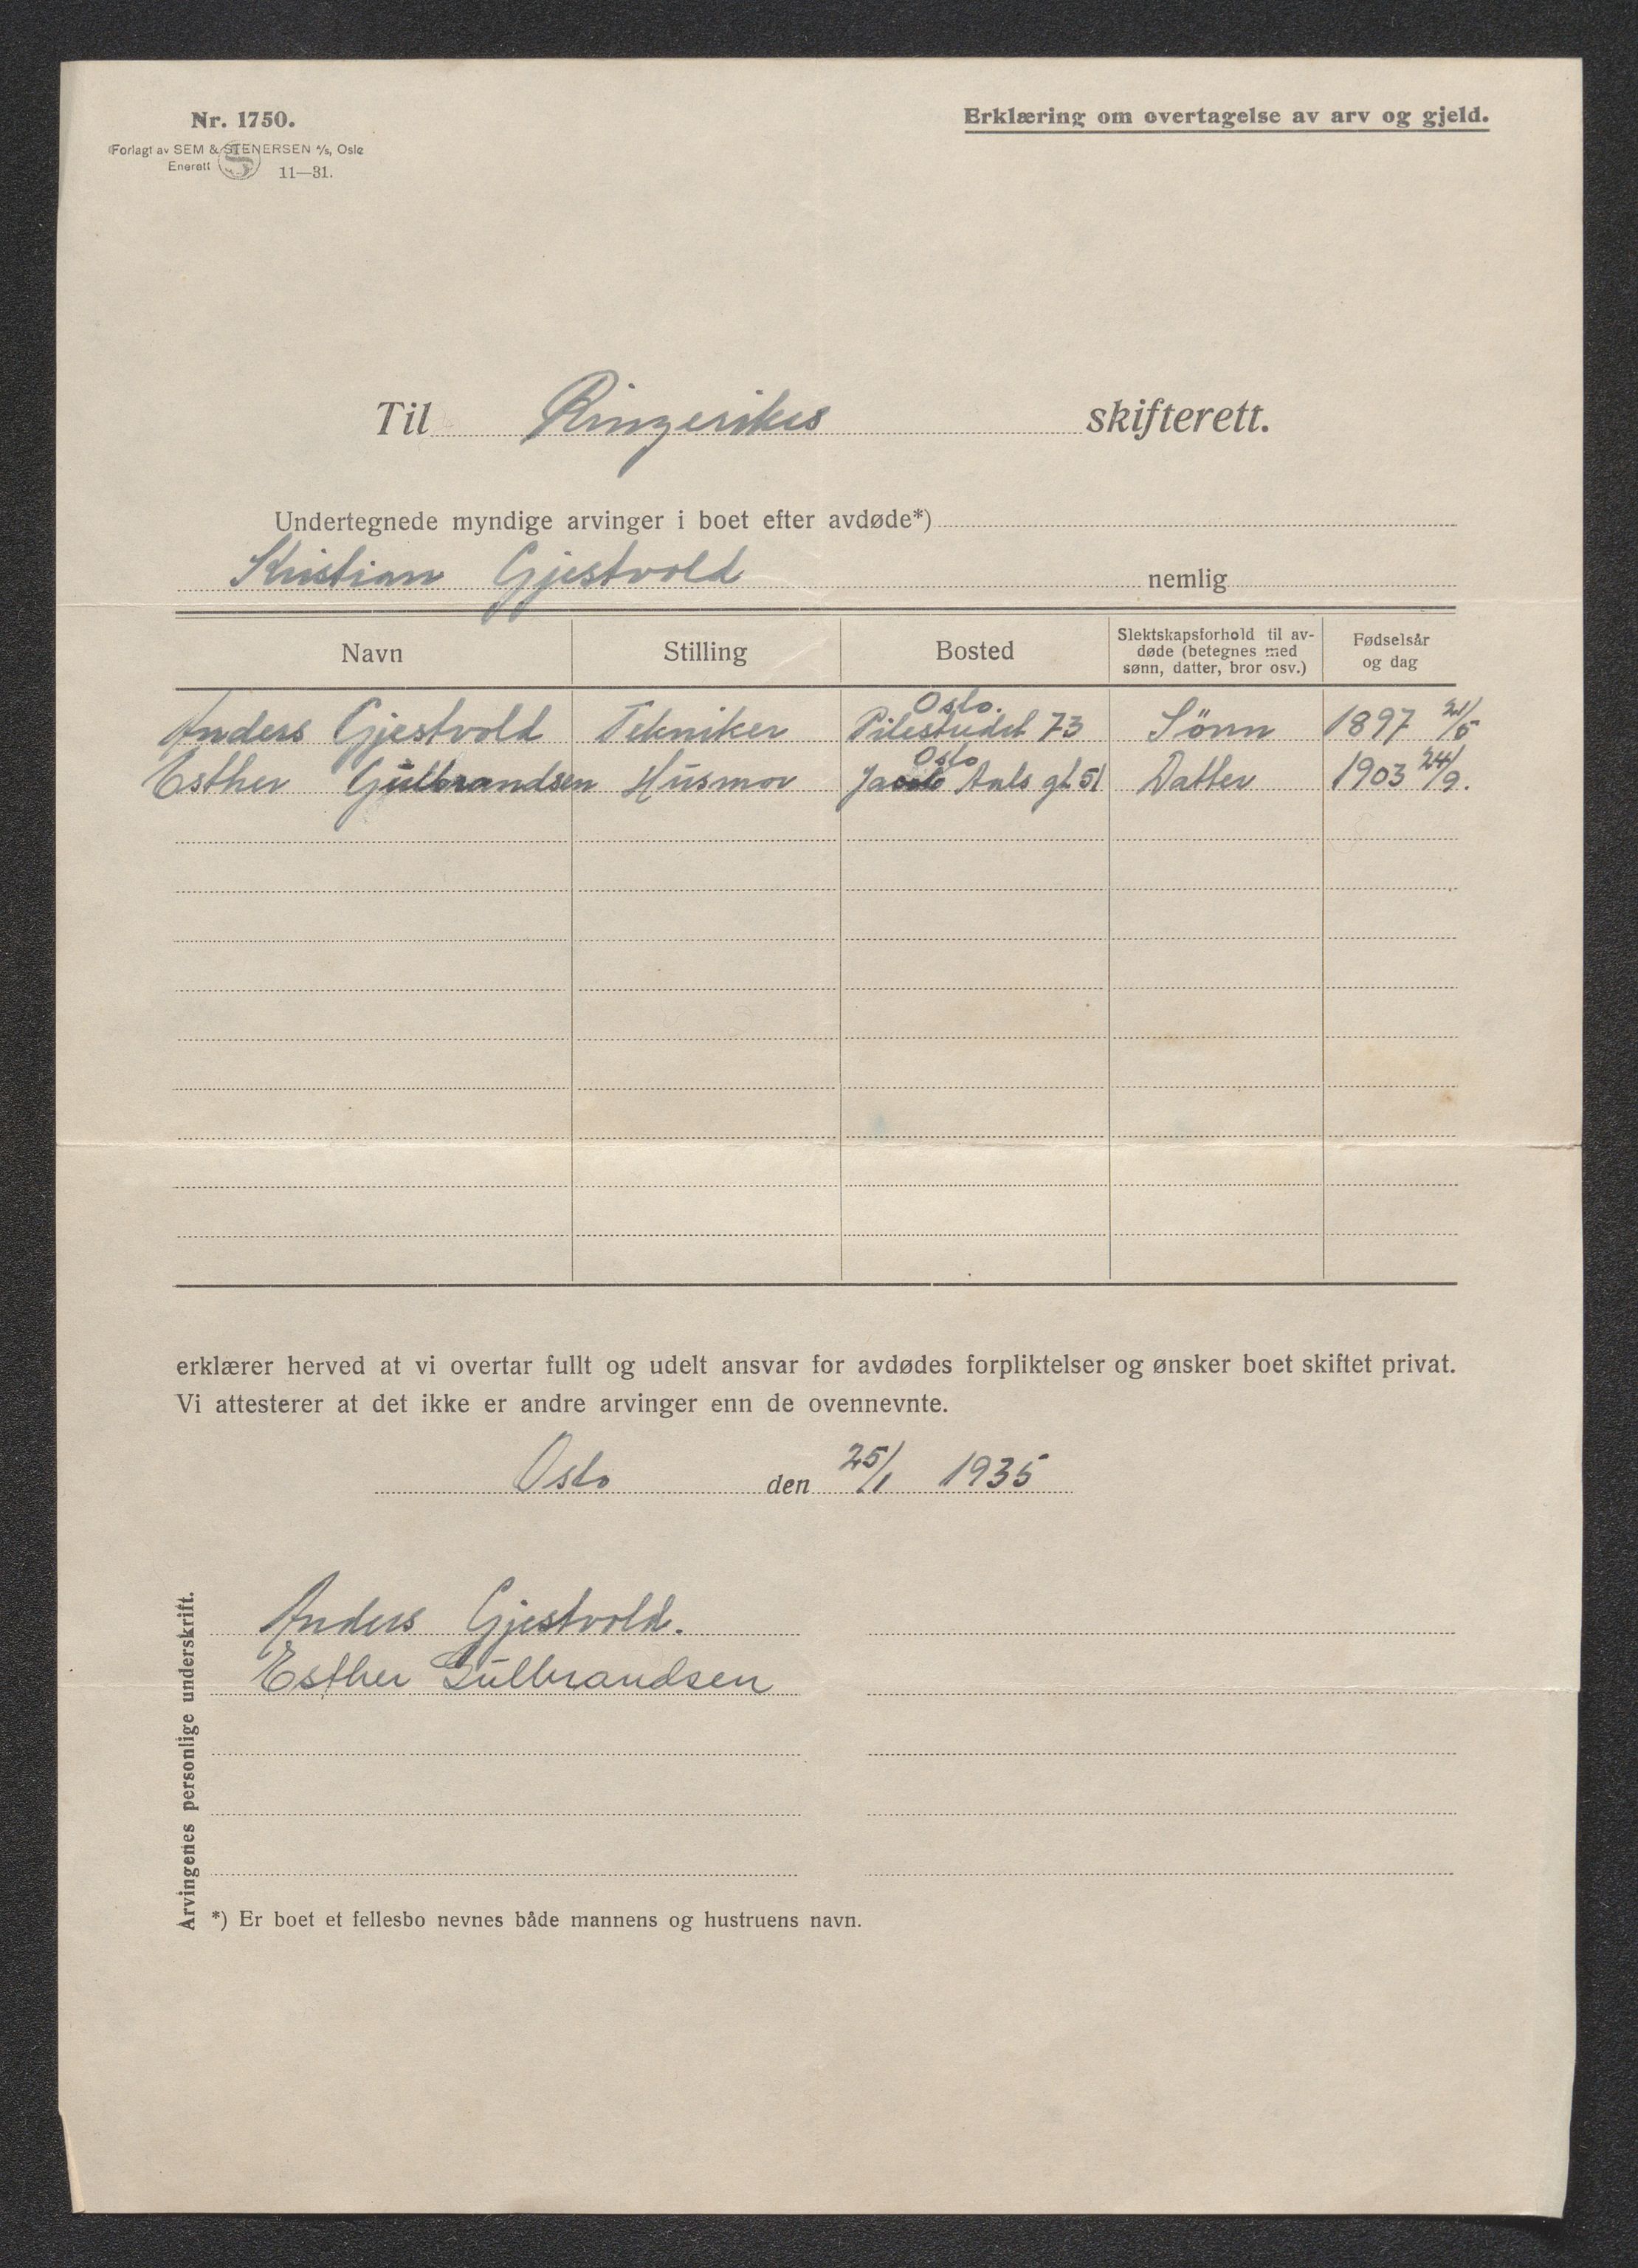 Nr. 1750.
Forlagt av SEM & STENERSEN A/S, Oslo
Enerett S 11—31.
Erklæring om overtagelse av arv og gjeld.
Til Ringerikes skifterett.
Undertegnede myndige arvinger i boet efter avdøde*)
Kristian Gjestvold nemlig
Navn Stilling Bosted Slektskapsforhold til av-
døde (betegnes med
sønn, datter, bror osv.) Fødselsår
og dag
Oslo.
Anders Gjestvold Tekniker Pilestredet 73 Sönn 1897 21/5
Oslo
Esther Gulbrandsen Husmor Jacob Aals gt 51 Datter 1903 24/9.
erklærer herved at vi overtar fullt og udelt ansvar for avdødes forpliktelser og ønsker boet skiftet privat.
Vi attesterer at det ikke er andre arvinger enn de ovennevnte.
Oslo den 25/1 1935
Arvingenes personlige underskrift.
Anders Gjestvold.
Esther Gulbrandsen
*) Er boet et fellesbo nevnes både mannens og hustruens navn.